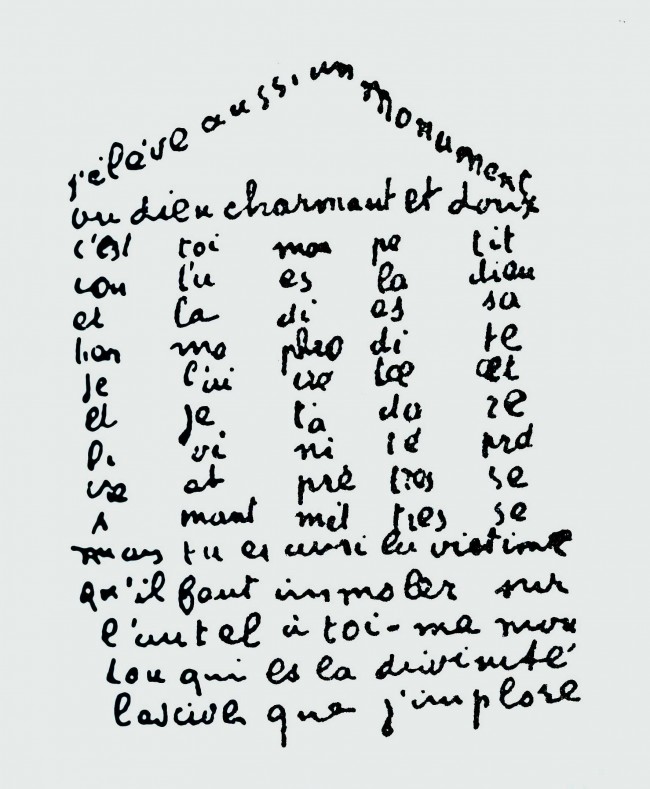 j'élève aussi un Monument
au dieu charmant et doux
c'est toi mon pe tit
Lou tu es la dieu
et la di es sa
di te
Je et
et je t'a do re
Di vi ni té
et prê tres se
A mant maî tres se
mais tu es aussi la victime
qu'il faut immoler sur
l'autel à toi-même mon
Lou qui es la divinité
lascive que j'implore